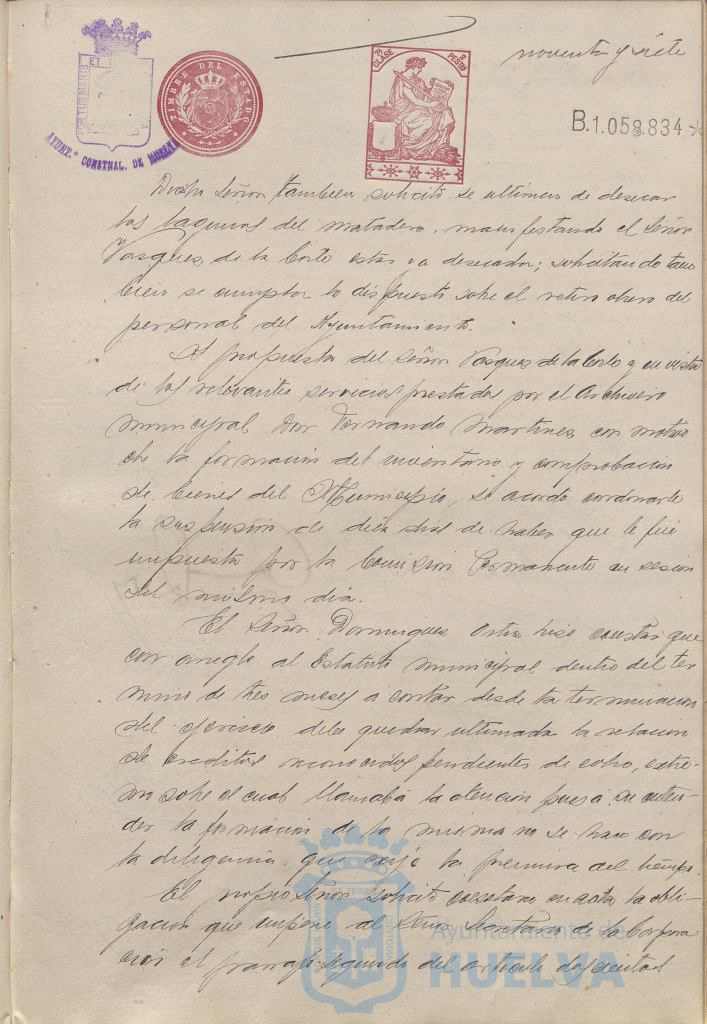 noventa y siete
PORTUS MARIS ET
AYUNT.º CONSTNAL. DE HUELVA
TIMBRE DEL ESTADO
7ª CLASE
PESTAS
B.1.058.834 *
Dicho Señor tambien solicitó se ultimen de desecar
las lagunas del matadero, manifestando el Señor
Vasques de la Corte estar ya desecadas; solicitando tam
bien se cumpla lo dispuesto sobre el retiro obrero del
personal del Ayuntamiento.
A propuesta del Señor Vasques de la Corte y en vista
de los relevantes servicios prestados por el Archivero
municipal Don Fernando Martines con motivo
de la formacion del inventario y comprobacion
de bienes del Municipio, se acordó condonarle
la suspension de dies dias de haber que le fué
impuesta por la Comision Permanente en sesion
del mismo dia.
El Señor Domingues Ortis hiso constar que
con arreglo al Estatuto municipal dentro del ter
mino de tres meses a contar desde la terminacion
del ejercicio debe quedar ultimada la relacion
de creditos reconocidos pendientes de cobro, extre-
mo sobre el cual llamaba la atencion pues a su enten-
der la formacion de la misma no se hace con
la diligencia que exije la premura del tiempo.
El propio Señor solicitó constara en acta la obli-
gacion que impone al Señor Secretario de la Corpora
cion el parrafo segundo del articulo doscientos
Ayuntamiento de
HUELVA